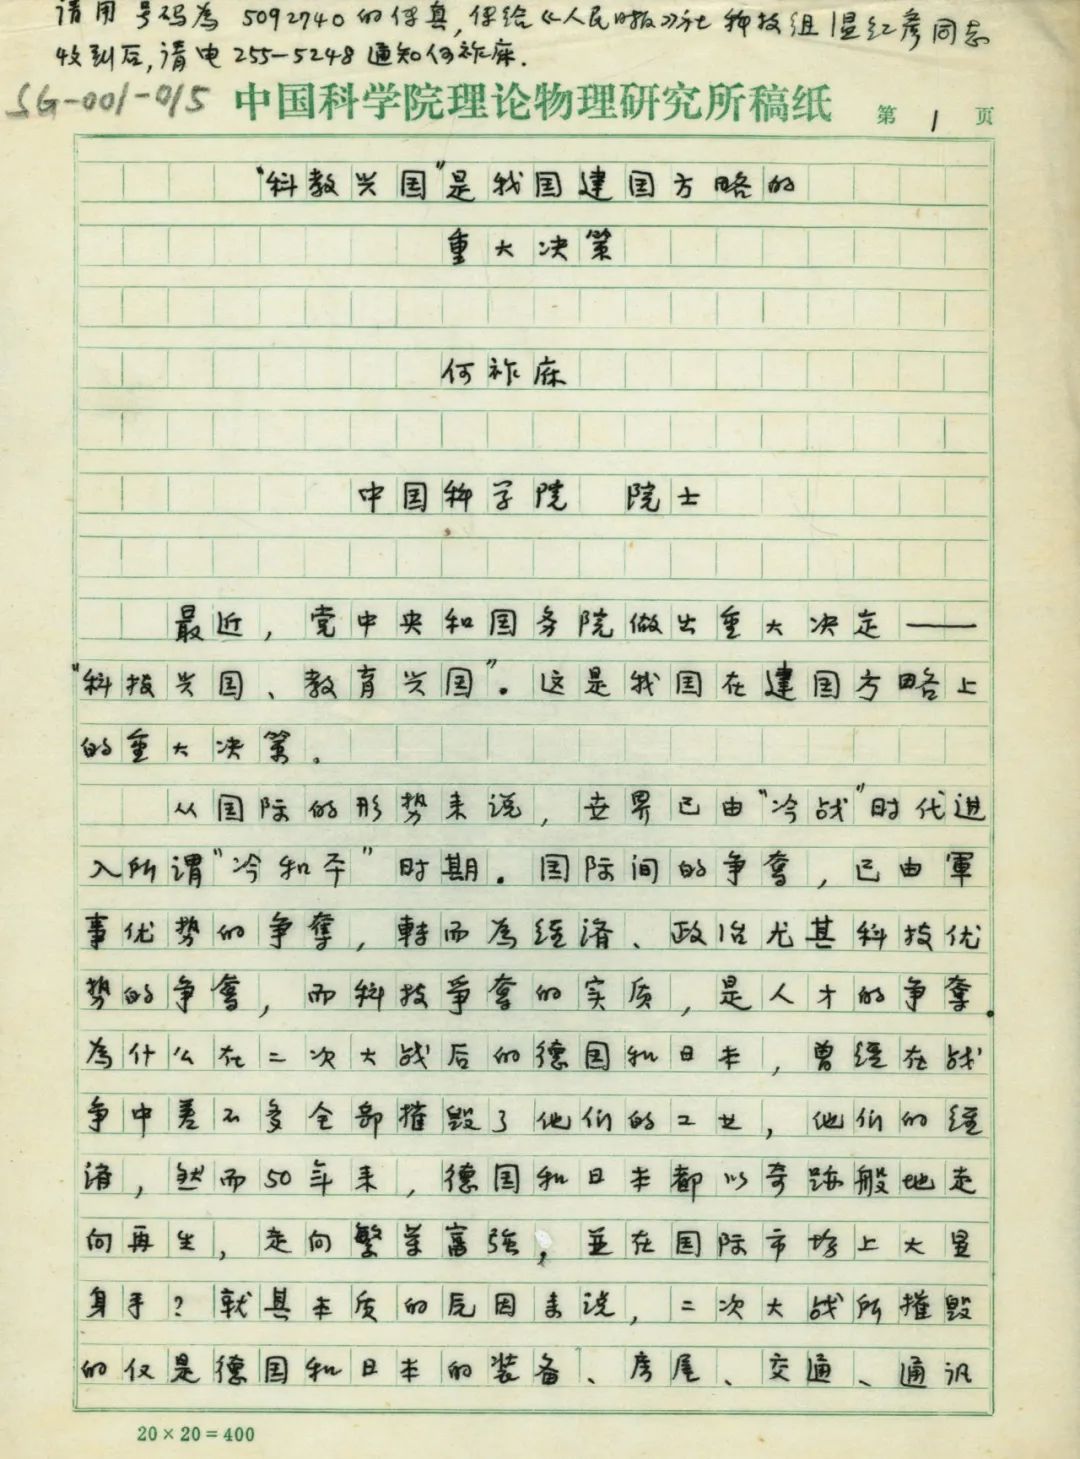 请用号码為5092740的传真,传给《人民日报》社科技组温红彦同志
收到后,请电255-5248通知何祚庥.
SG-001-015 中国科学院理论物理研究所稿纸 第1页
“科教兴国”是我国建国方略的
重大决策
何祚庥
中国科学院 院士
最近,党中央和国务院做出重大决定——
“科技兴国、教育兴国”。这是我国在建国方略上
的重大决策。
从国际的形势来说,世界已由“冷战”时代进
入所谓“冷和平”时期。国际间的争夺,已由軍
事优势的争夺,轉而為经济、政治尤其科技优
势的争夺,而科技争夺的实质,是人才的争夺。
為什么在二次大战后的德国和日本,曾经在战
争中差不多全部摧毁了他们的工业,他们的经
济,然而50年来,德国和日本都以奇跡般地走
向再生,走向繁荣富強,並在国际市场上大显
身手?就其本质的原因来说,二次大战所摧毁
的仅是德国和日本的装备、房屋、交通、通讯
20×20=400